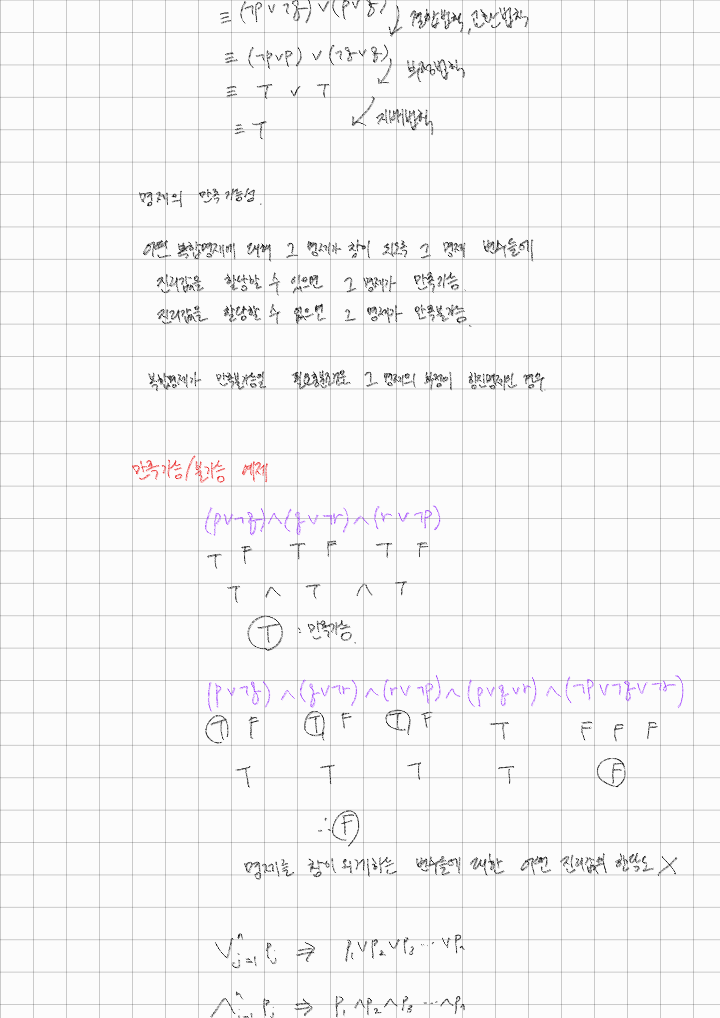 ≡ (¬p ∨ ¬q) ∨ (p ∨ q) 결합법칙, 교환법칙
≡ (¬p ∨ p) ∨ (¬q ∨ q) 부정법칙
≡ T ∨ T
≡ T 지배법칙
명제의 만족가능성.
어떤 복합명제에 대하여 그 명제가 참이 되도록 그 명제 변수들에
진리값을 할당할 수 있으면 그 명제가 만족가능.
진리값을 할당할 수 없으면 그 명제가 만족불가능.
복합명제가 만족불가능일 필요충분조건은 그 명제의 부정이 항진명제인 경우.
만족가능/불가능 예제
(p ∨ ¬q) ∧ (q ∨ ¬r) ∧ (r ∨ ¬p)
T F T F T F
T ∧ T ∧ T
T : 만족가능.
(p ∨ ¬q) ∧ (q ∨ ¬r) ∧ (r ∨ ¬p) ∧ (p ∨ q ∨ r) ∧ (¬p ∨ ¬q ∨ ¬r)
T F T F T F T F F F
T T T T F
∴ F
명제를 참이 되게하는 변수들에 대한 어떤 진리값의 할당도 X
⋁ⁿⱼ₌₁ pⱼ ⇒ p₁ ∨ p₂ ∨ p₃ ... ∨ pₙ
⋀ⁿⱼ₌₁ pⱼ ⇒ p₁ ∧ p₂ ∧ p₃ ... ∧ pₙ